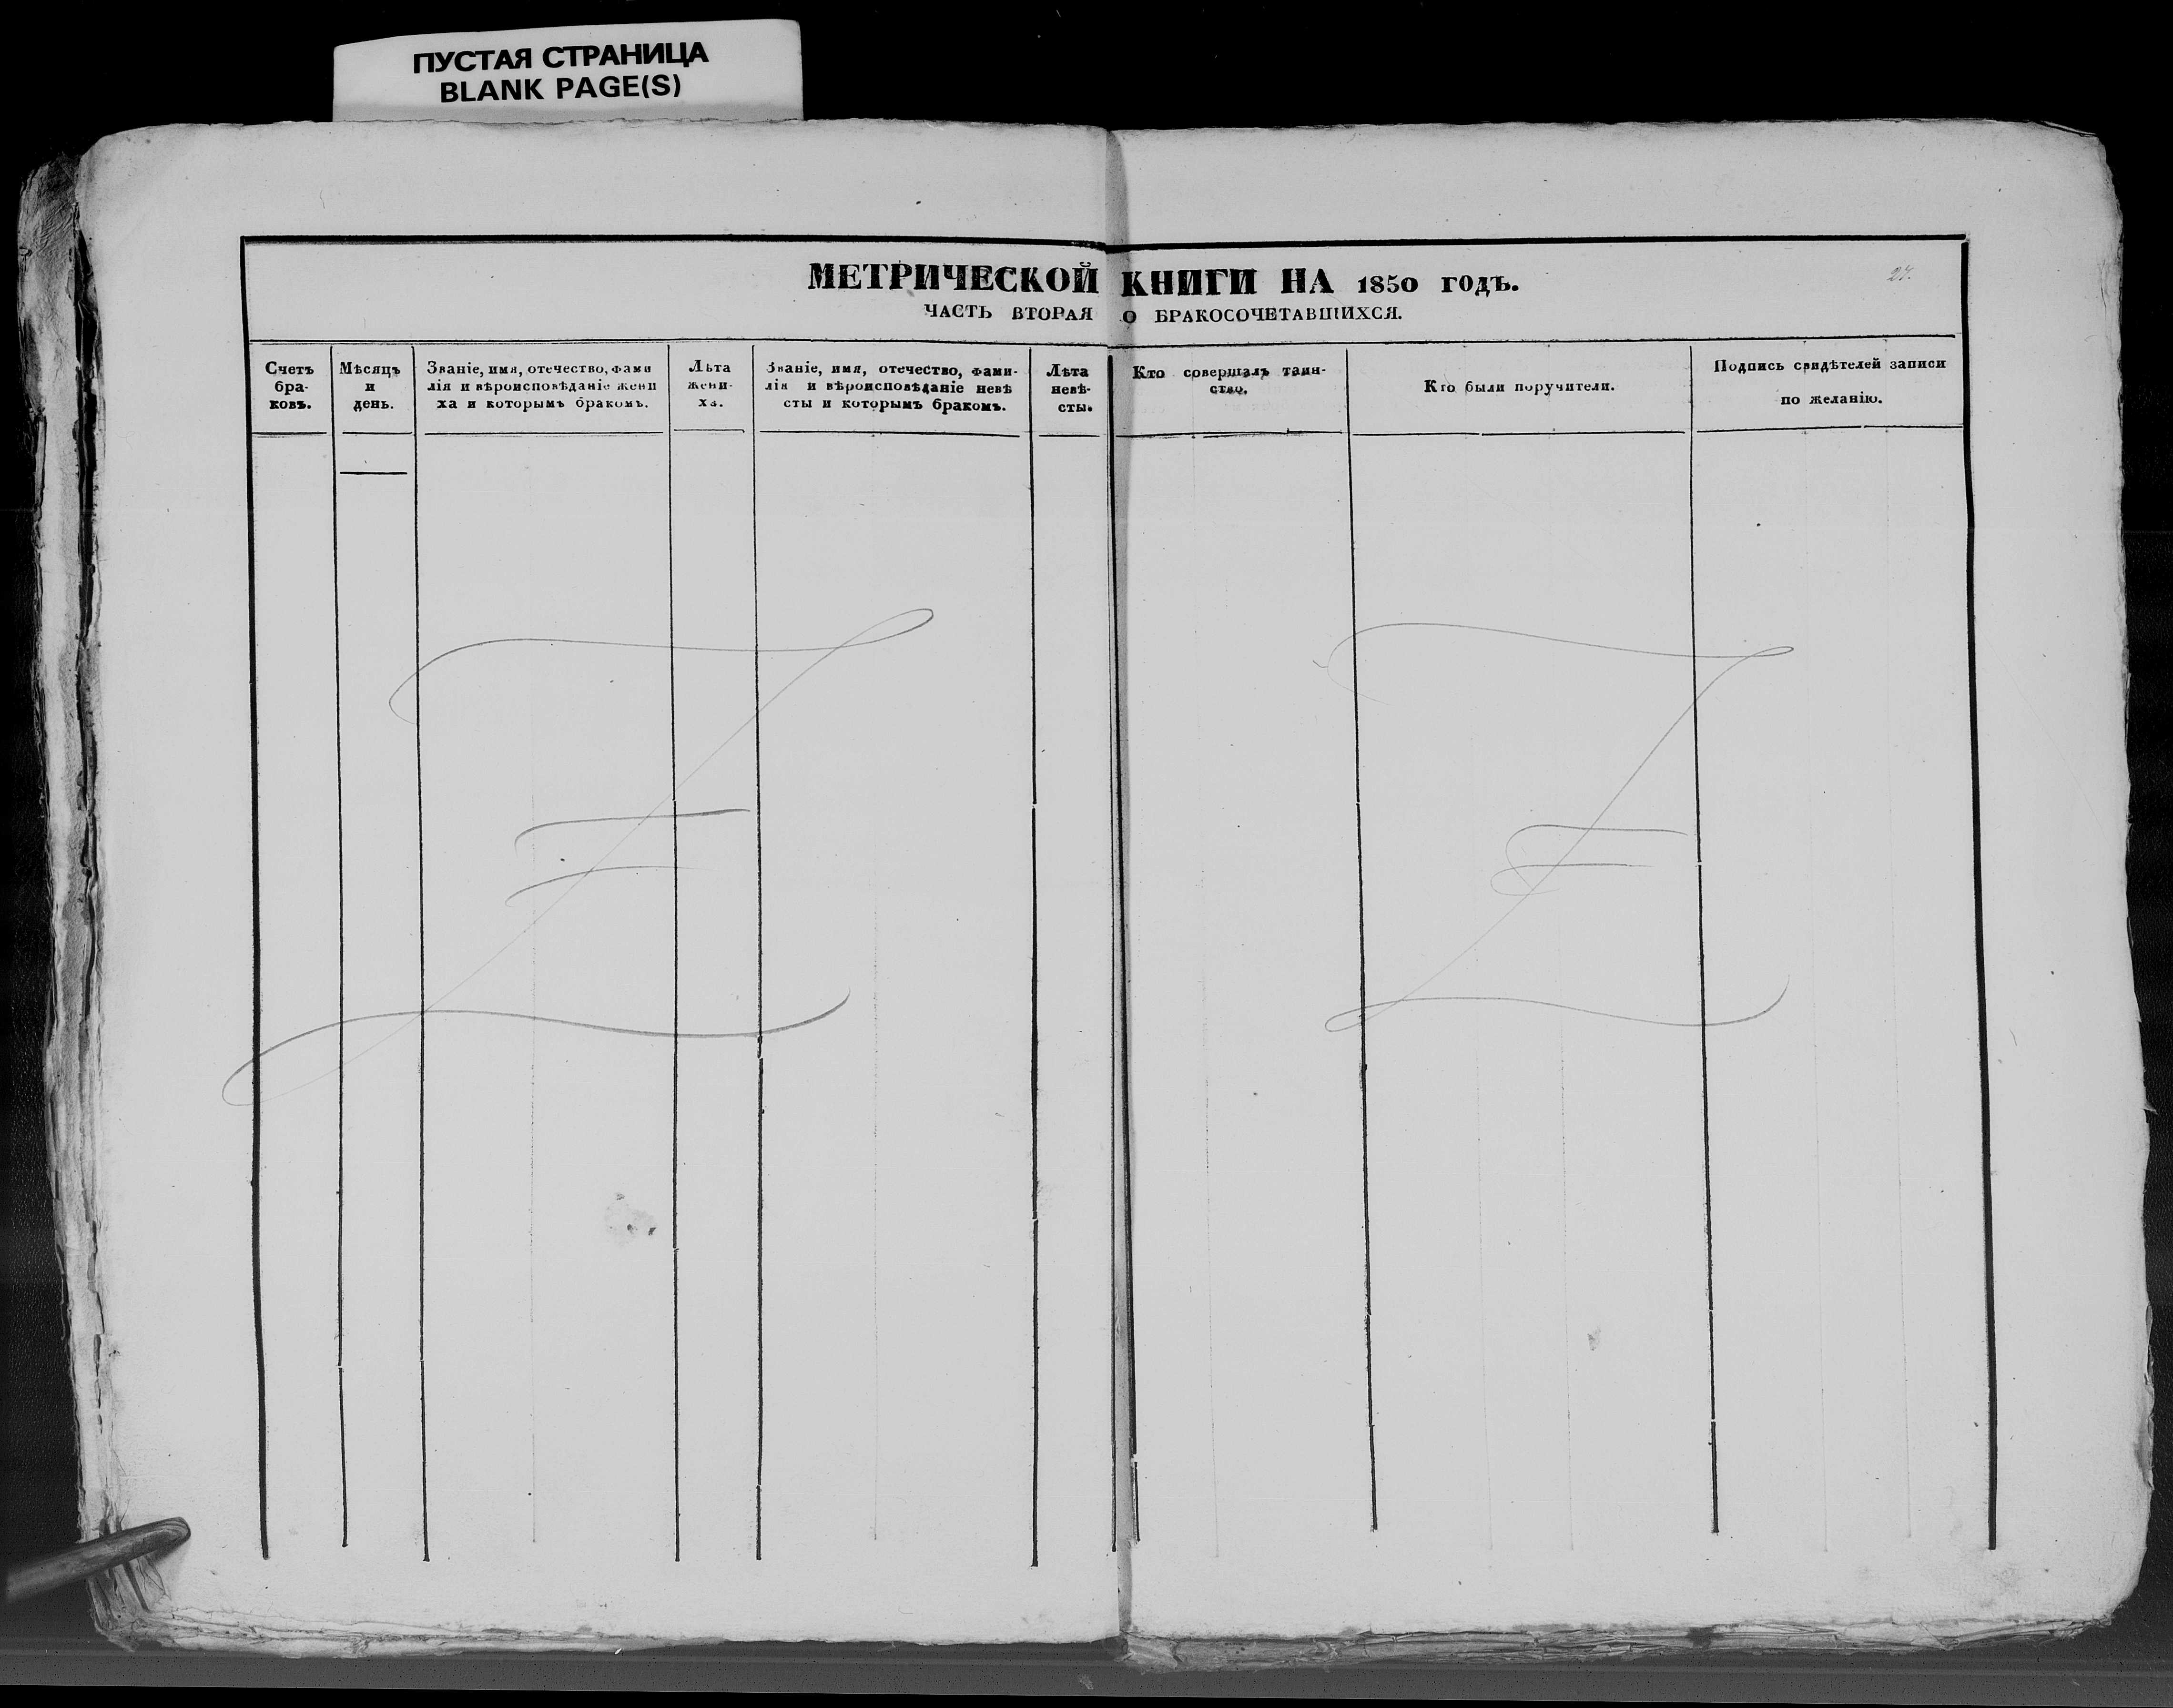 ПУСТАЯ СТРАНИЦА
BLANK PAGE(S)
МЕТРИЧЕСКОЙ КНИГИ НА 1850 ГОДЪ.
ЧАСТЬ ВТОРАЯ О БРАКОСОЧЕТАВШИХСЯ.
Счетъ
бра-
ковъ.
Мѣсяцъ
и
день.
Званіе, имя, отечество, фами
лія и вѣроисповѣданіе жени
ха и которымъ бракомъ.
Лѣта
жени-
ха.
Званіе, имя, отечество, фами-
лія и вѣроисповѣданіе невѣ
сты и которымъ бракомъ.
Лѣта
невѣ-
сты.
Кто совершалъ таин-
ство.
Кто были поручители.
Подпись свидѣтелей записи
по желанію.